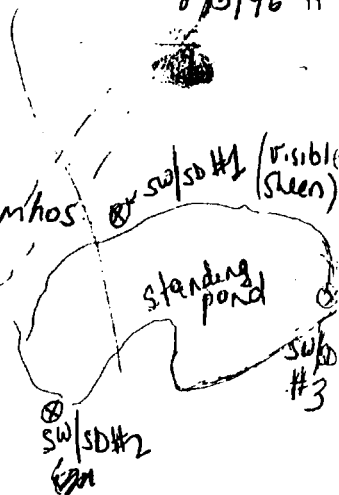 SW/SD #1 (visible
sheen)
mhos
standing
pond
SW/SD
#3
SW/SD #2